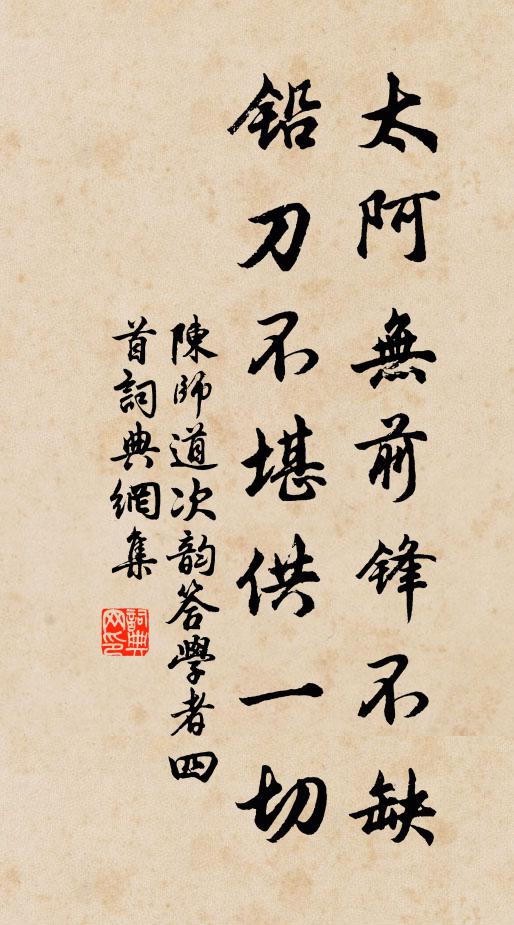 太阿無前鋒不缺
鉛刀不堪供一切
陳師道次韵答學者四
首詞典網集
詞典
网印